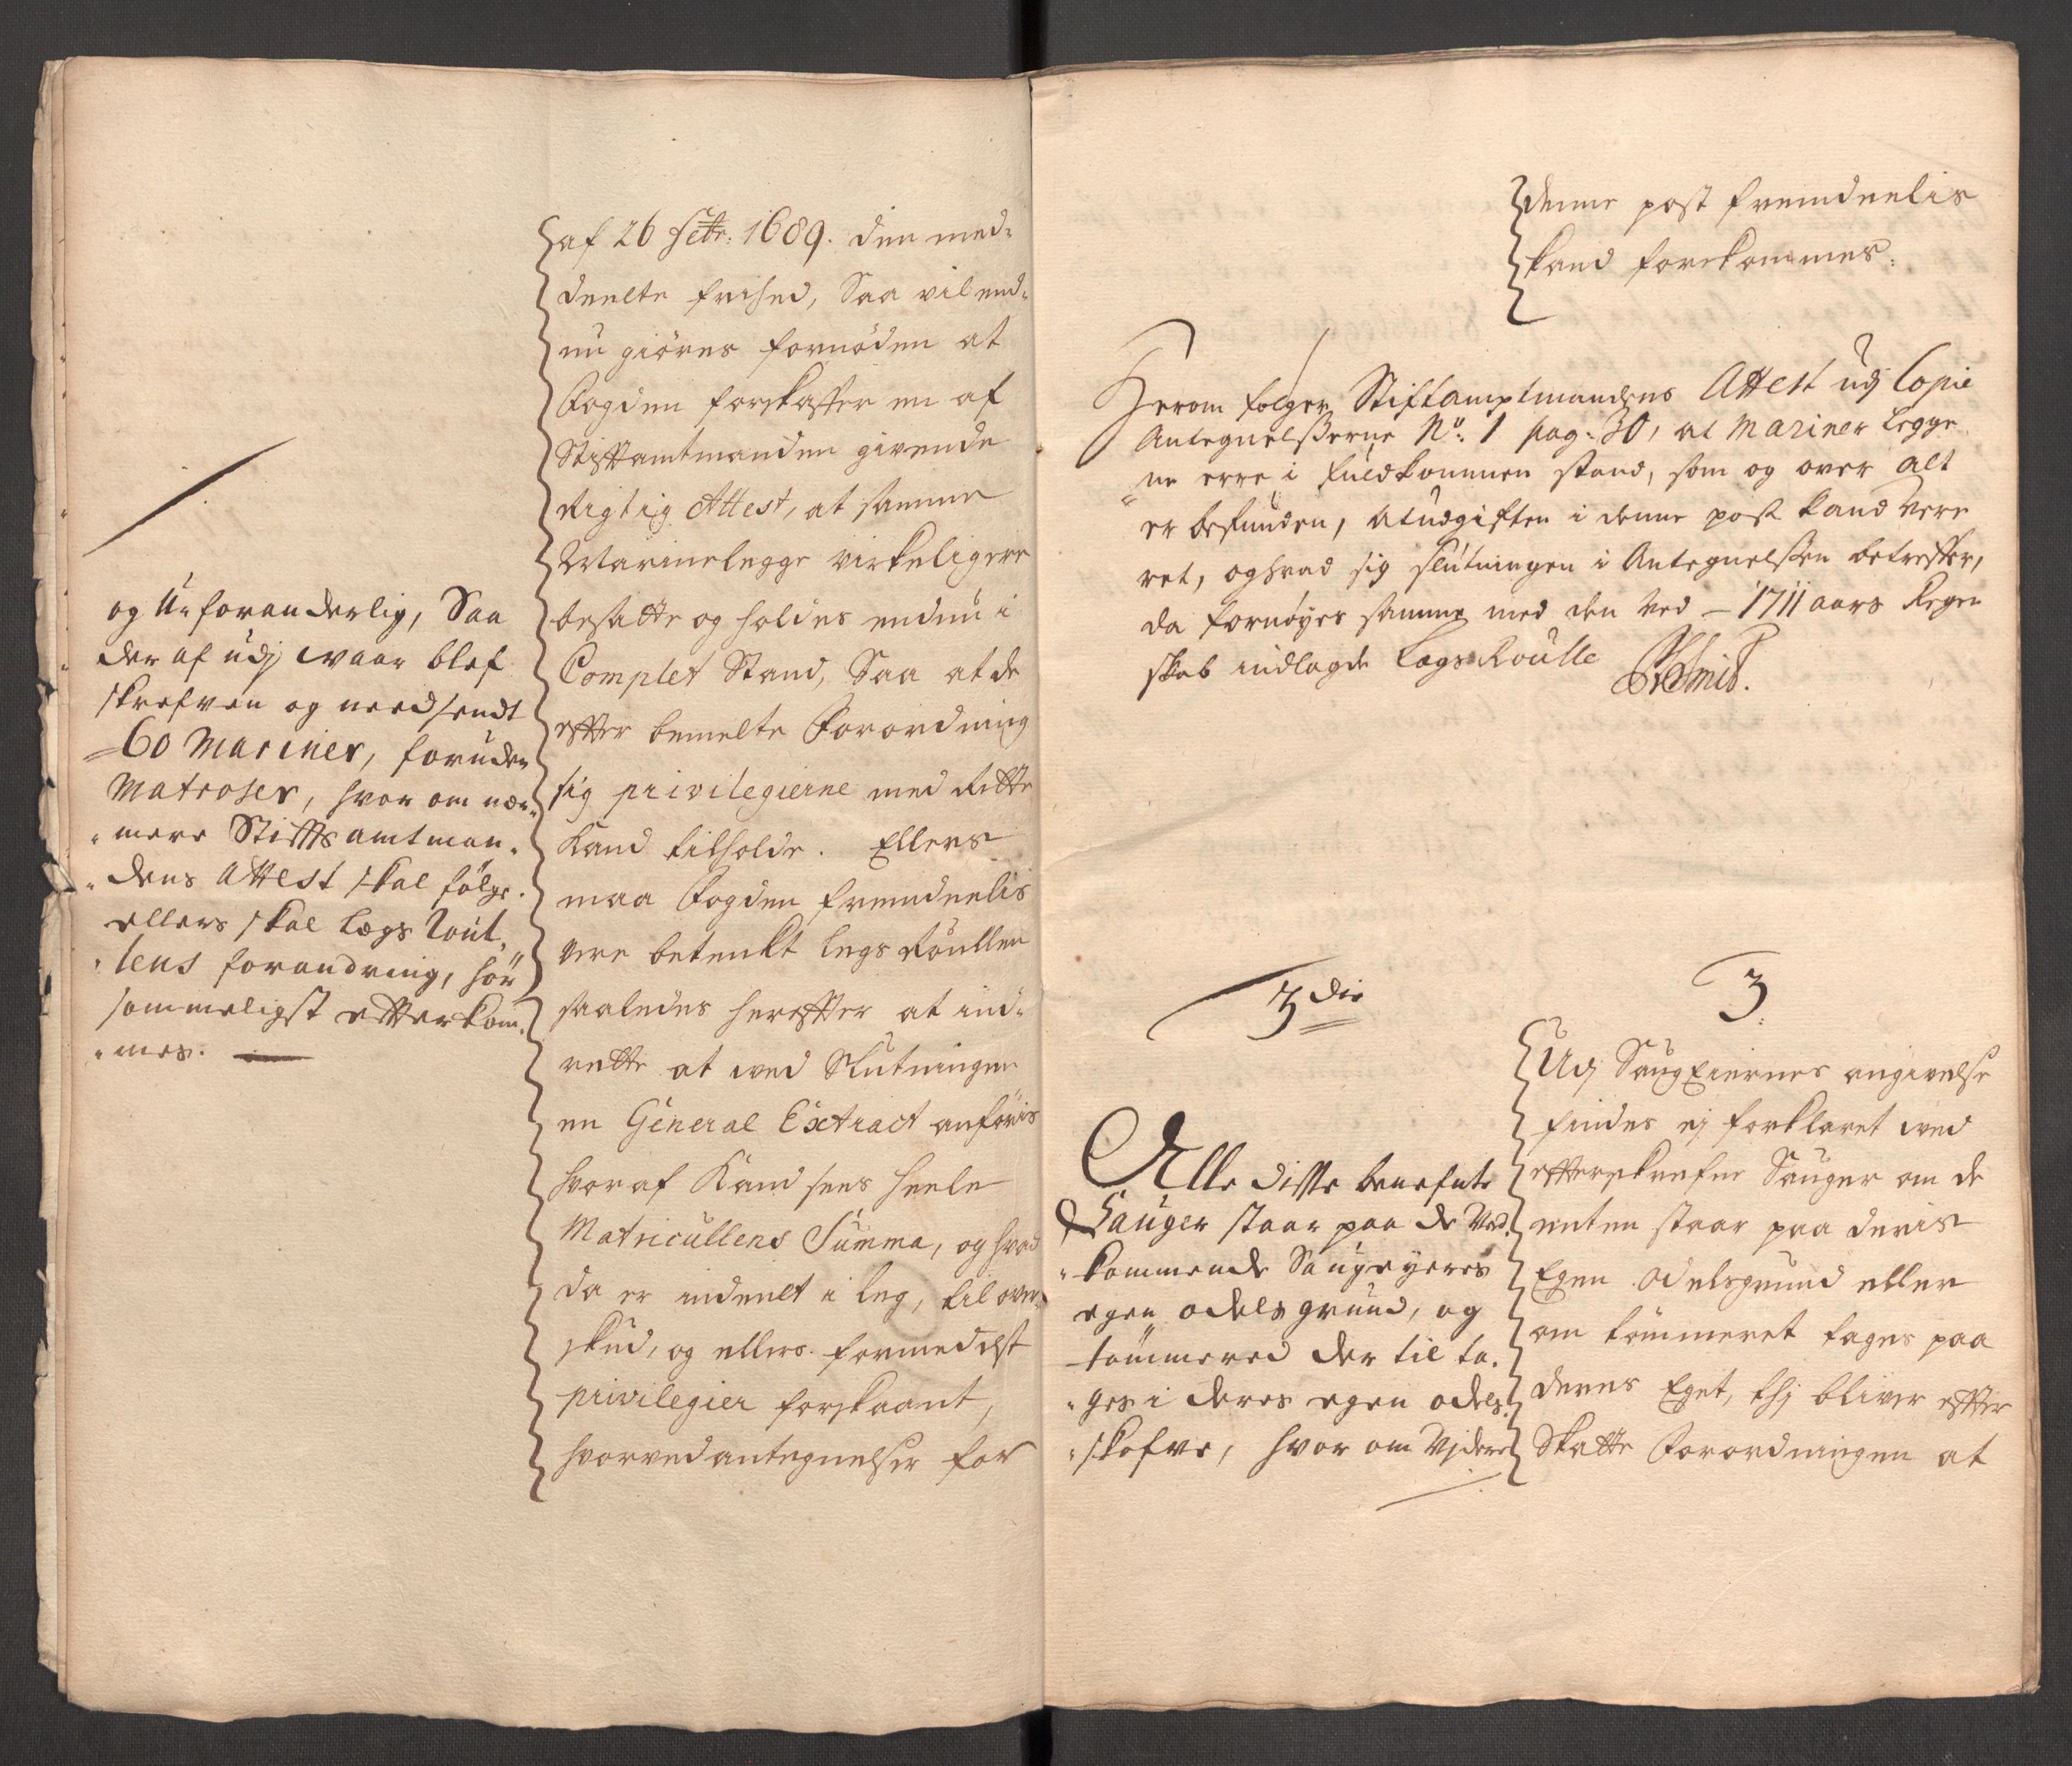 og u-foranderlig, Saa
der af udj waar blef
skrefven og needsendt
60 Mariner, foruden
Matroser, hvor om nær-
mere Stifftsamtman-
dens Attest skal følge.
ellers skal Lægs Roul-
lens forandring, hør
sommeligst efterkom-
mes.
af 26 Sebr: 1689. den med-
deelte frihed, Saa vil end-
nu giöres fornöden at
Fogden forskaffer en af
Stiftamtmanden givende
Rigtig Attest, at samme
Marinelegge virkeligere
besatte og holdes endnu i
Complet Stand, Saa at de
effter bemelte Forordning
sig privilegierne med Rette
Kand tilholde. Ellers
maa Fogden fremdeelis
vere betenkt legs Roullen
saaledes hereffter at ind-
rette at wed Slutningen
en General Extract anföris
hvoraf Kand sees heele
Matricullens Summa, og hvad
da er indeelt i leg, til over-
skud, og ellers formedelst
privilegier forskaant,
hvorved antegnelser for
denne post fremdeelis
kand forekommes.
Herom følger Stiftamptmandens Attest udj Copie
Antegnelsserne No: 1 pag: 30, at Mariner Legge
ne erre i fuldkommen stand, som og over alt
er befunden, at udgiften i denne post kand vere
ret, og hvad sig slutningen i Antegnelsen betreffer,
da fornøyes samme med den ved 1711 aars Regen
skab indlagde Lægs Roulle
Smit.
3die
Alle disse benefnte
Sauger staar paa de Ved-
kommende Saugeyeres
egen odels grund, og
tömmered der til ta-
ges i deres egen odels
skofve, hvor om Vjdere
3
Udj Saug Eiernes angivelse
findes ej forklaret wed
efterskrefne Sauger om de
enten staar paa deris
Egen Odelsgrund eller
om tömmeret tages paa
deres Eget, thj bliver effter
Skatte Forordningen at